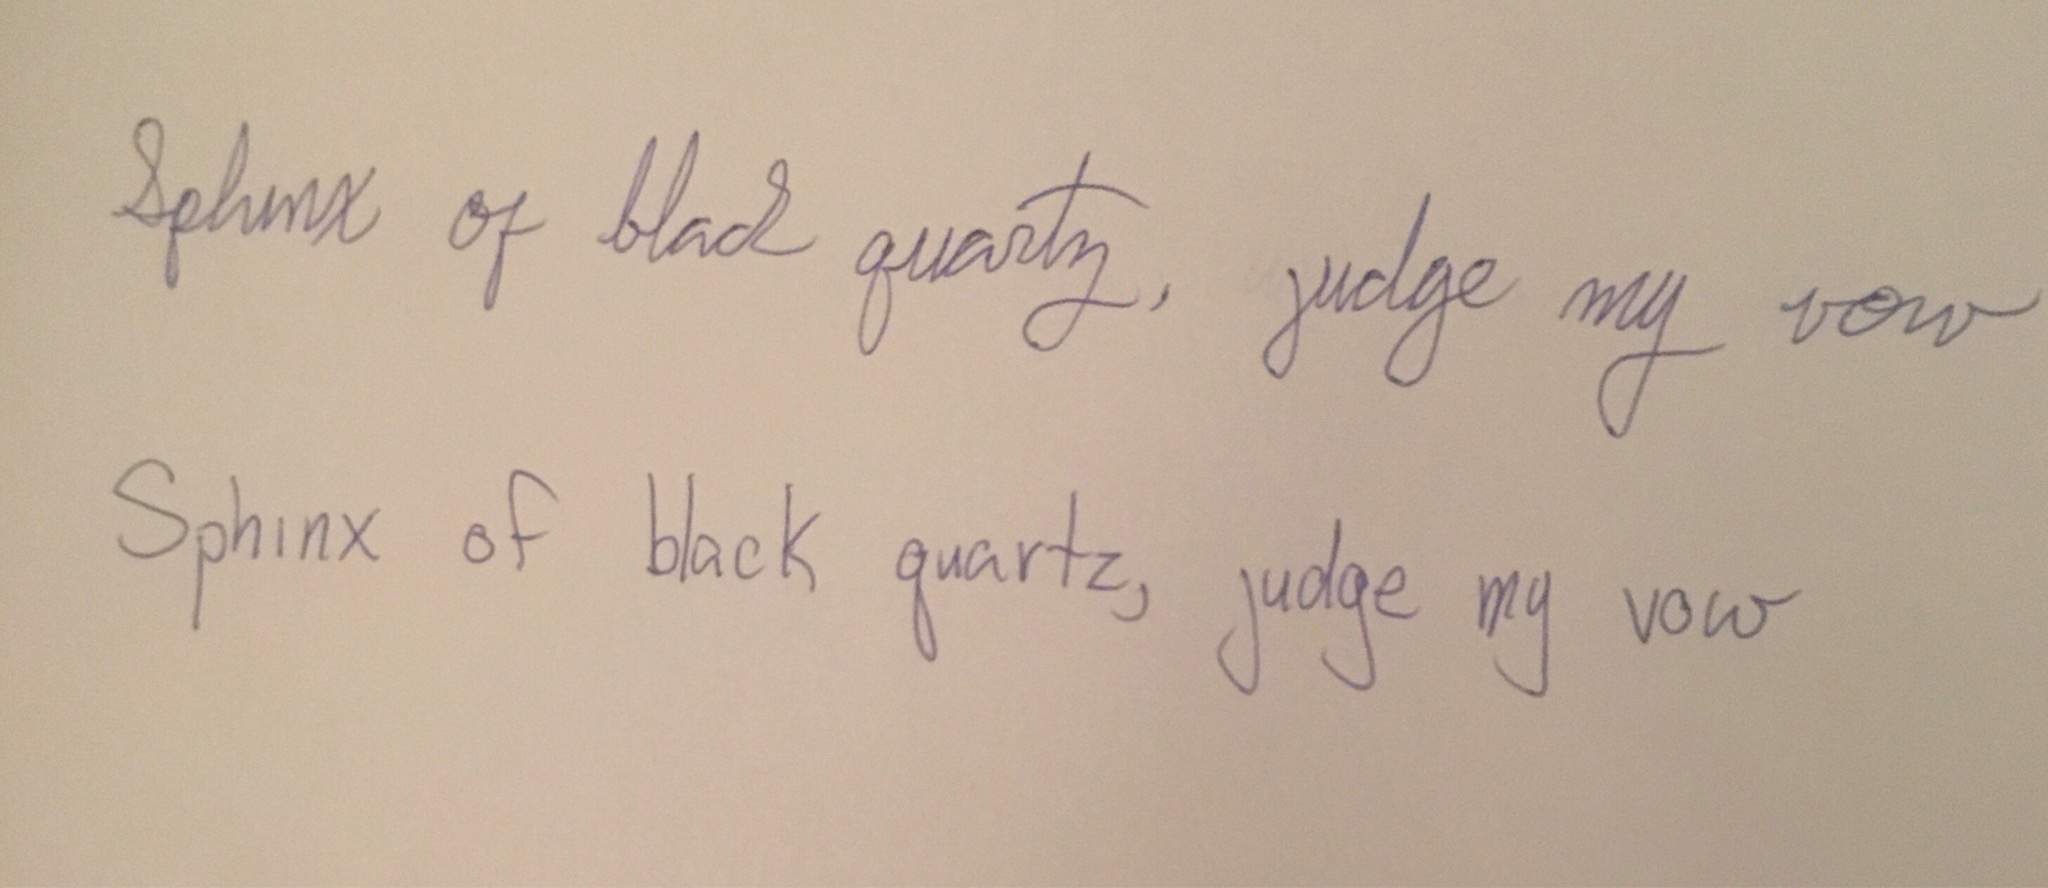 Sphinx of black quartz, judge my vow
Sphinx of black quartz, judge my vow